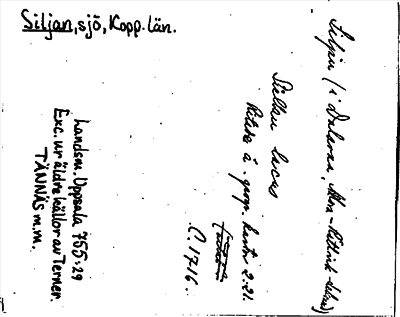 Siljan, sjö, Kopp. län.
Siljan (i Dalarna, Mora-Rättvik
Stellan lacus
å geogr. karta 2:21.
C. 1716.
Landsm. Uppsala 755:29
Exc. ur äldre källor av Terner.
TÄNNÄS m.m.